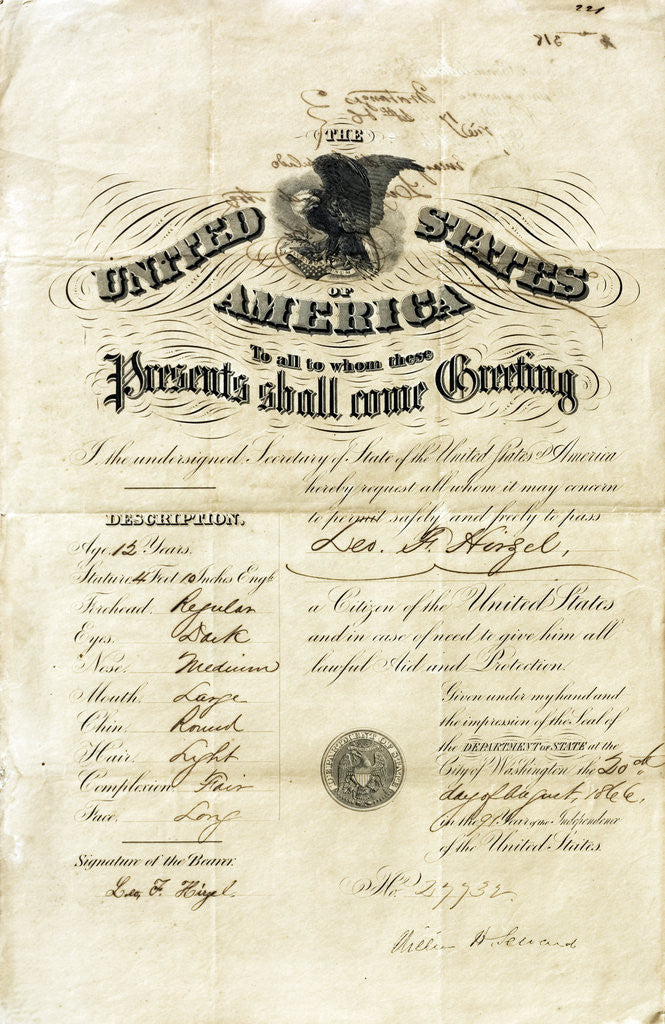 221
318
THE
UNITED STATES
OF
AMERICA
To all to whom these
Presents shall come Greeting
I the undersigned, Secretary of State of the United States of America
hereby request all whom it may concern
to permit safely and freely to pass
Leo. F. Hirzel,
DESCRIPTION.
Age, 12 Years.
Stature, 4 Feet 10 Inches Engh
Forehead, Regular
Eyes, Dark
Nose, Medium
Mouth, Large
Chin, Round
Hair, Light
Complexion, Fair
Face, Long
Signature of the Bearer.
Leo, F. Hirzel.
a Citizen of the United States
and in case of need to give him all
lawful Aid and Protection.
Given under my hand and
the impression of the Seal of
the DEPARTMENT OF STATE at the
City of Washington, the 20th
day of August, 1866,
in the 91 Year of the Independence
of the United States.
DEPARTMENT OF STATE
No. 27932
William H Seward